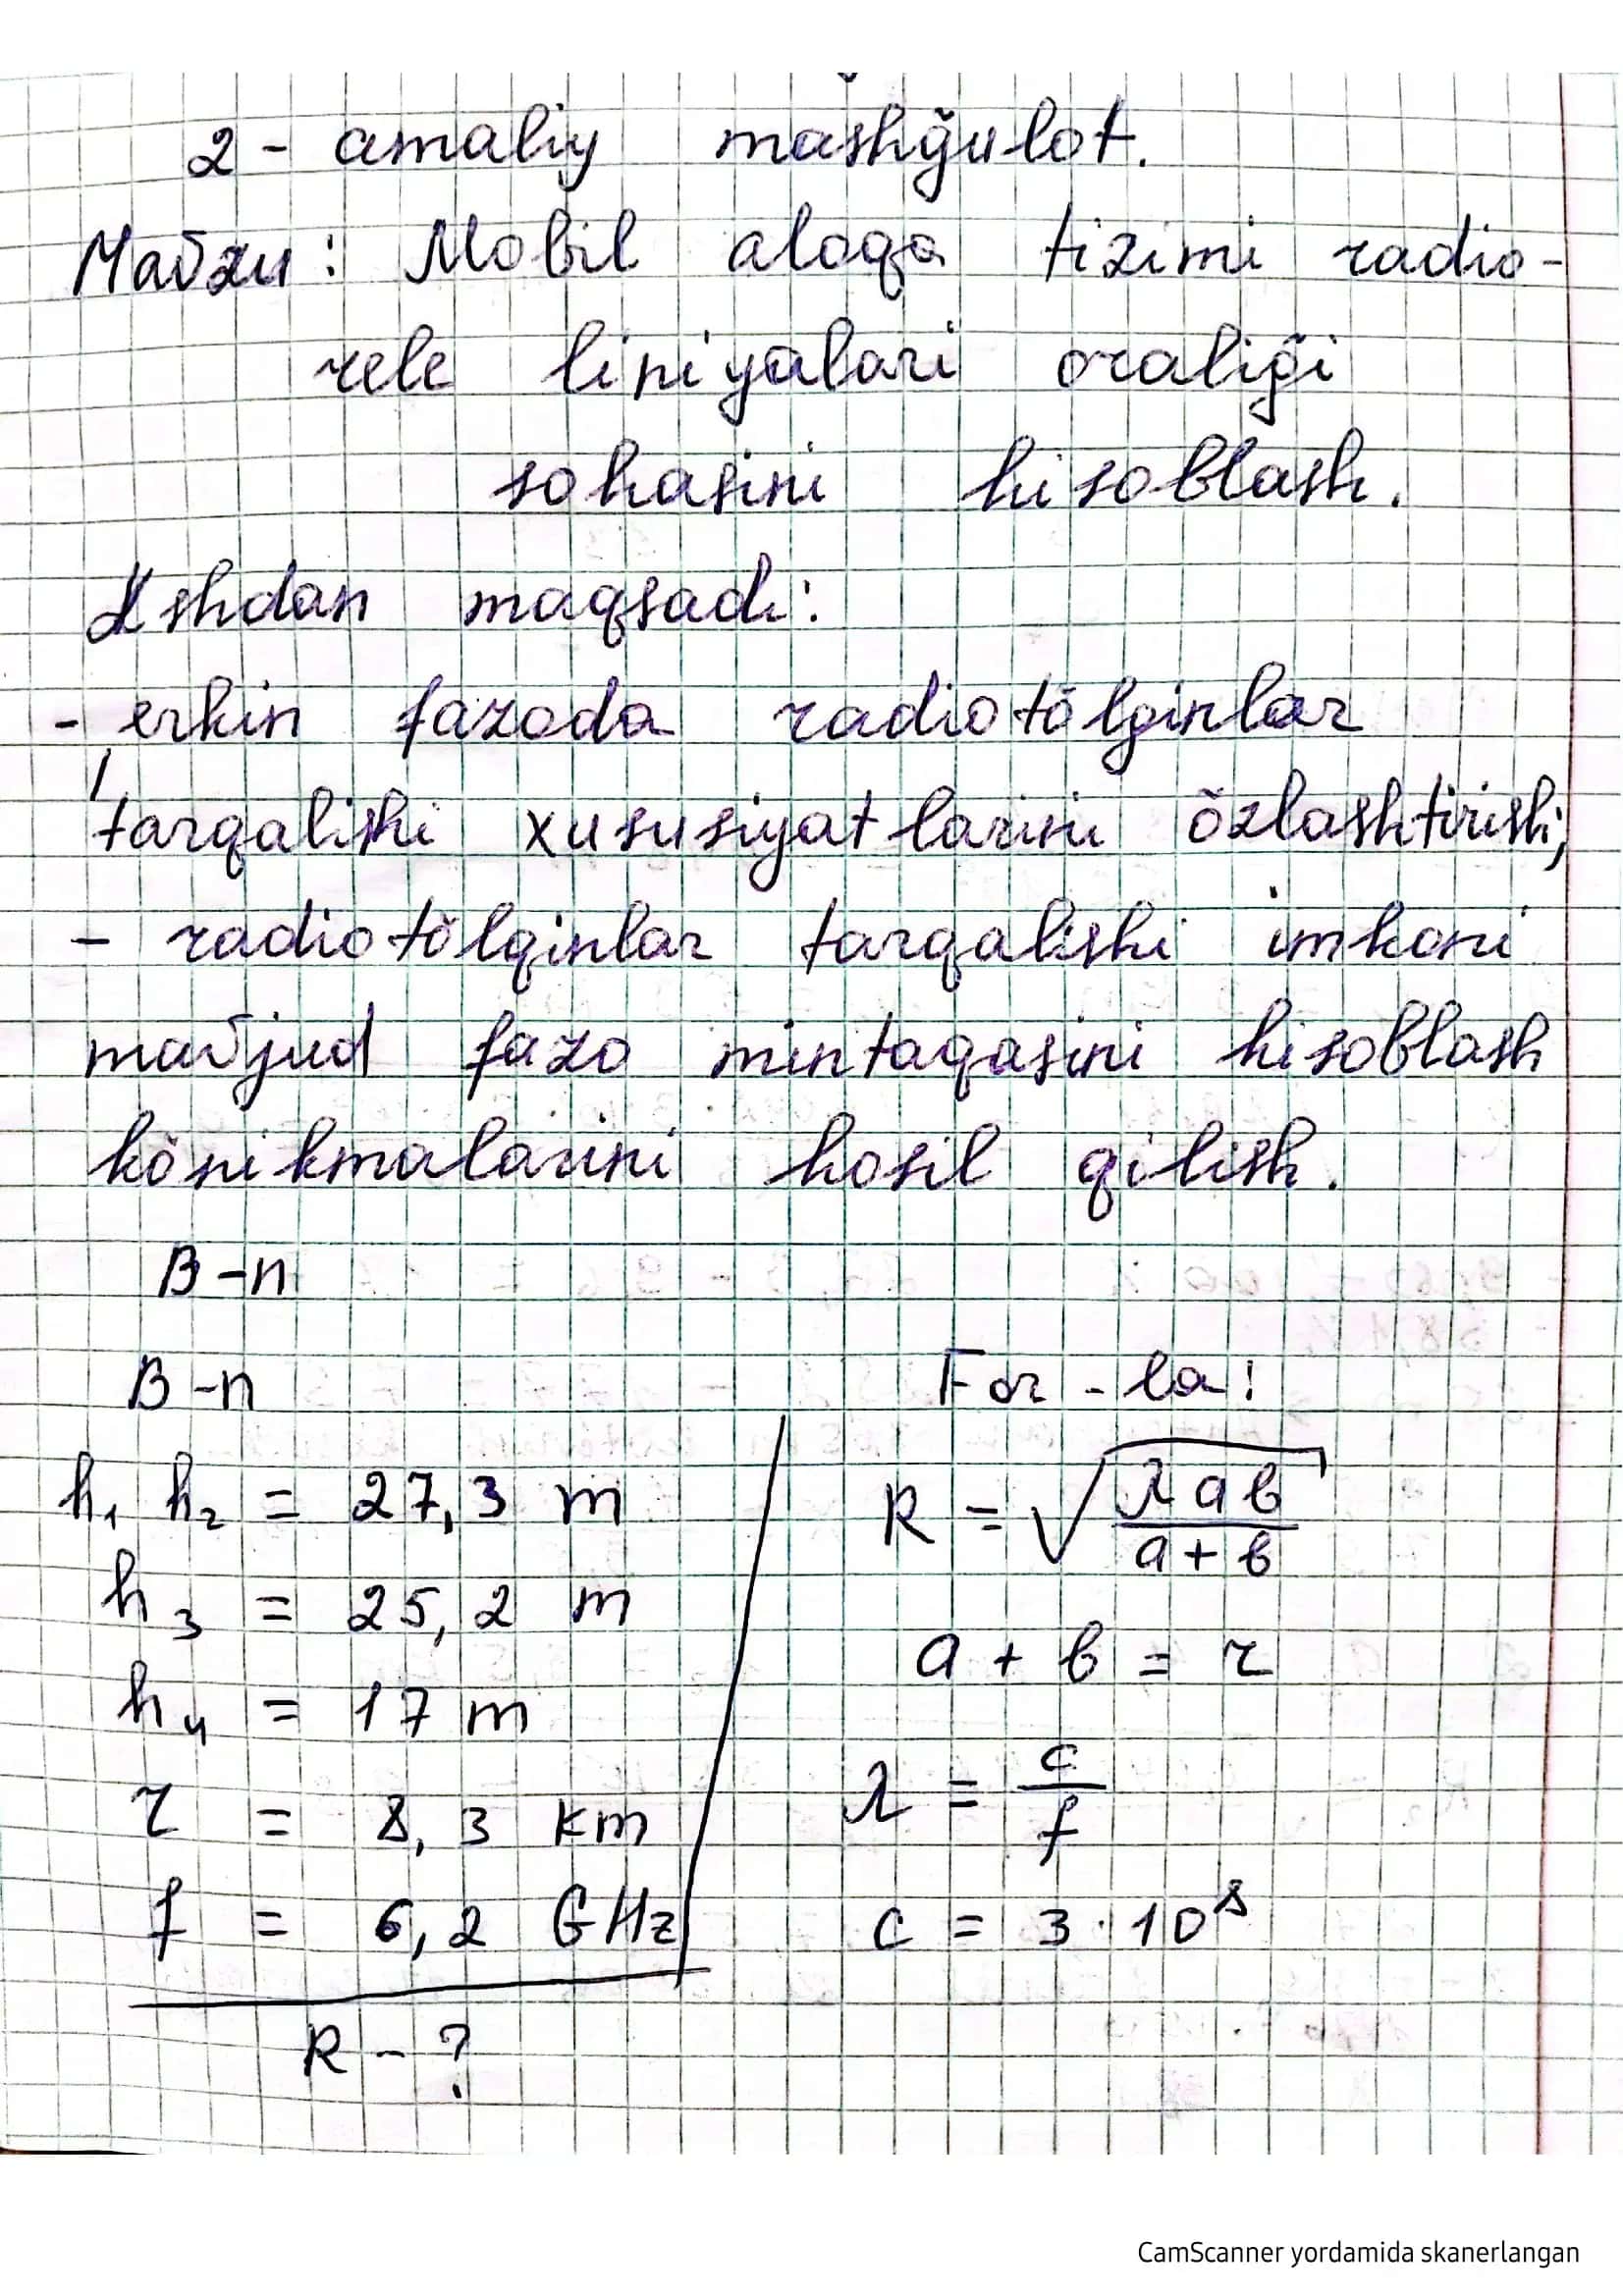 2 - amaliy mashğulot.
Mavzu: Mobil aloqa tizimi radio-
rele liniyalari oraliği
sohasini hisoblash.
Ishdan maqsad:
- erkin fazoda radiotŏlqinlar
tarqalishi xususiyatlarini ŏzlashtirish;
- radiotŏlqinlar tarqalishi imkoni
mavjud fazo mintaqasini hisoblash
kŏnikmalarini hosil qilish.
B-n
B-n
For-la:
h₁ h₂ = 27,3 m
R = √(λab / a+b)
h₃ = 25,2 m
a + b = r
h₄ = 17 m
λ = c/f
r = 8,3 km
f = 6,2 GHz
c = 3·10⁸
R - ?
CamScanner yordamida skanerlangan